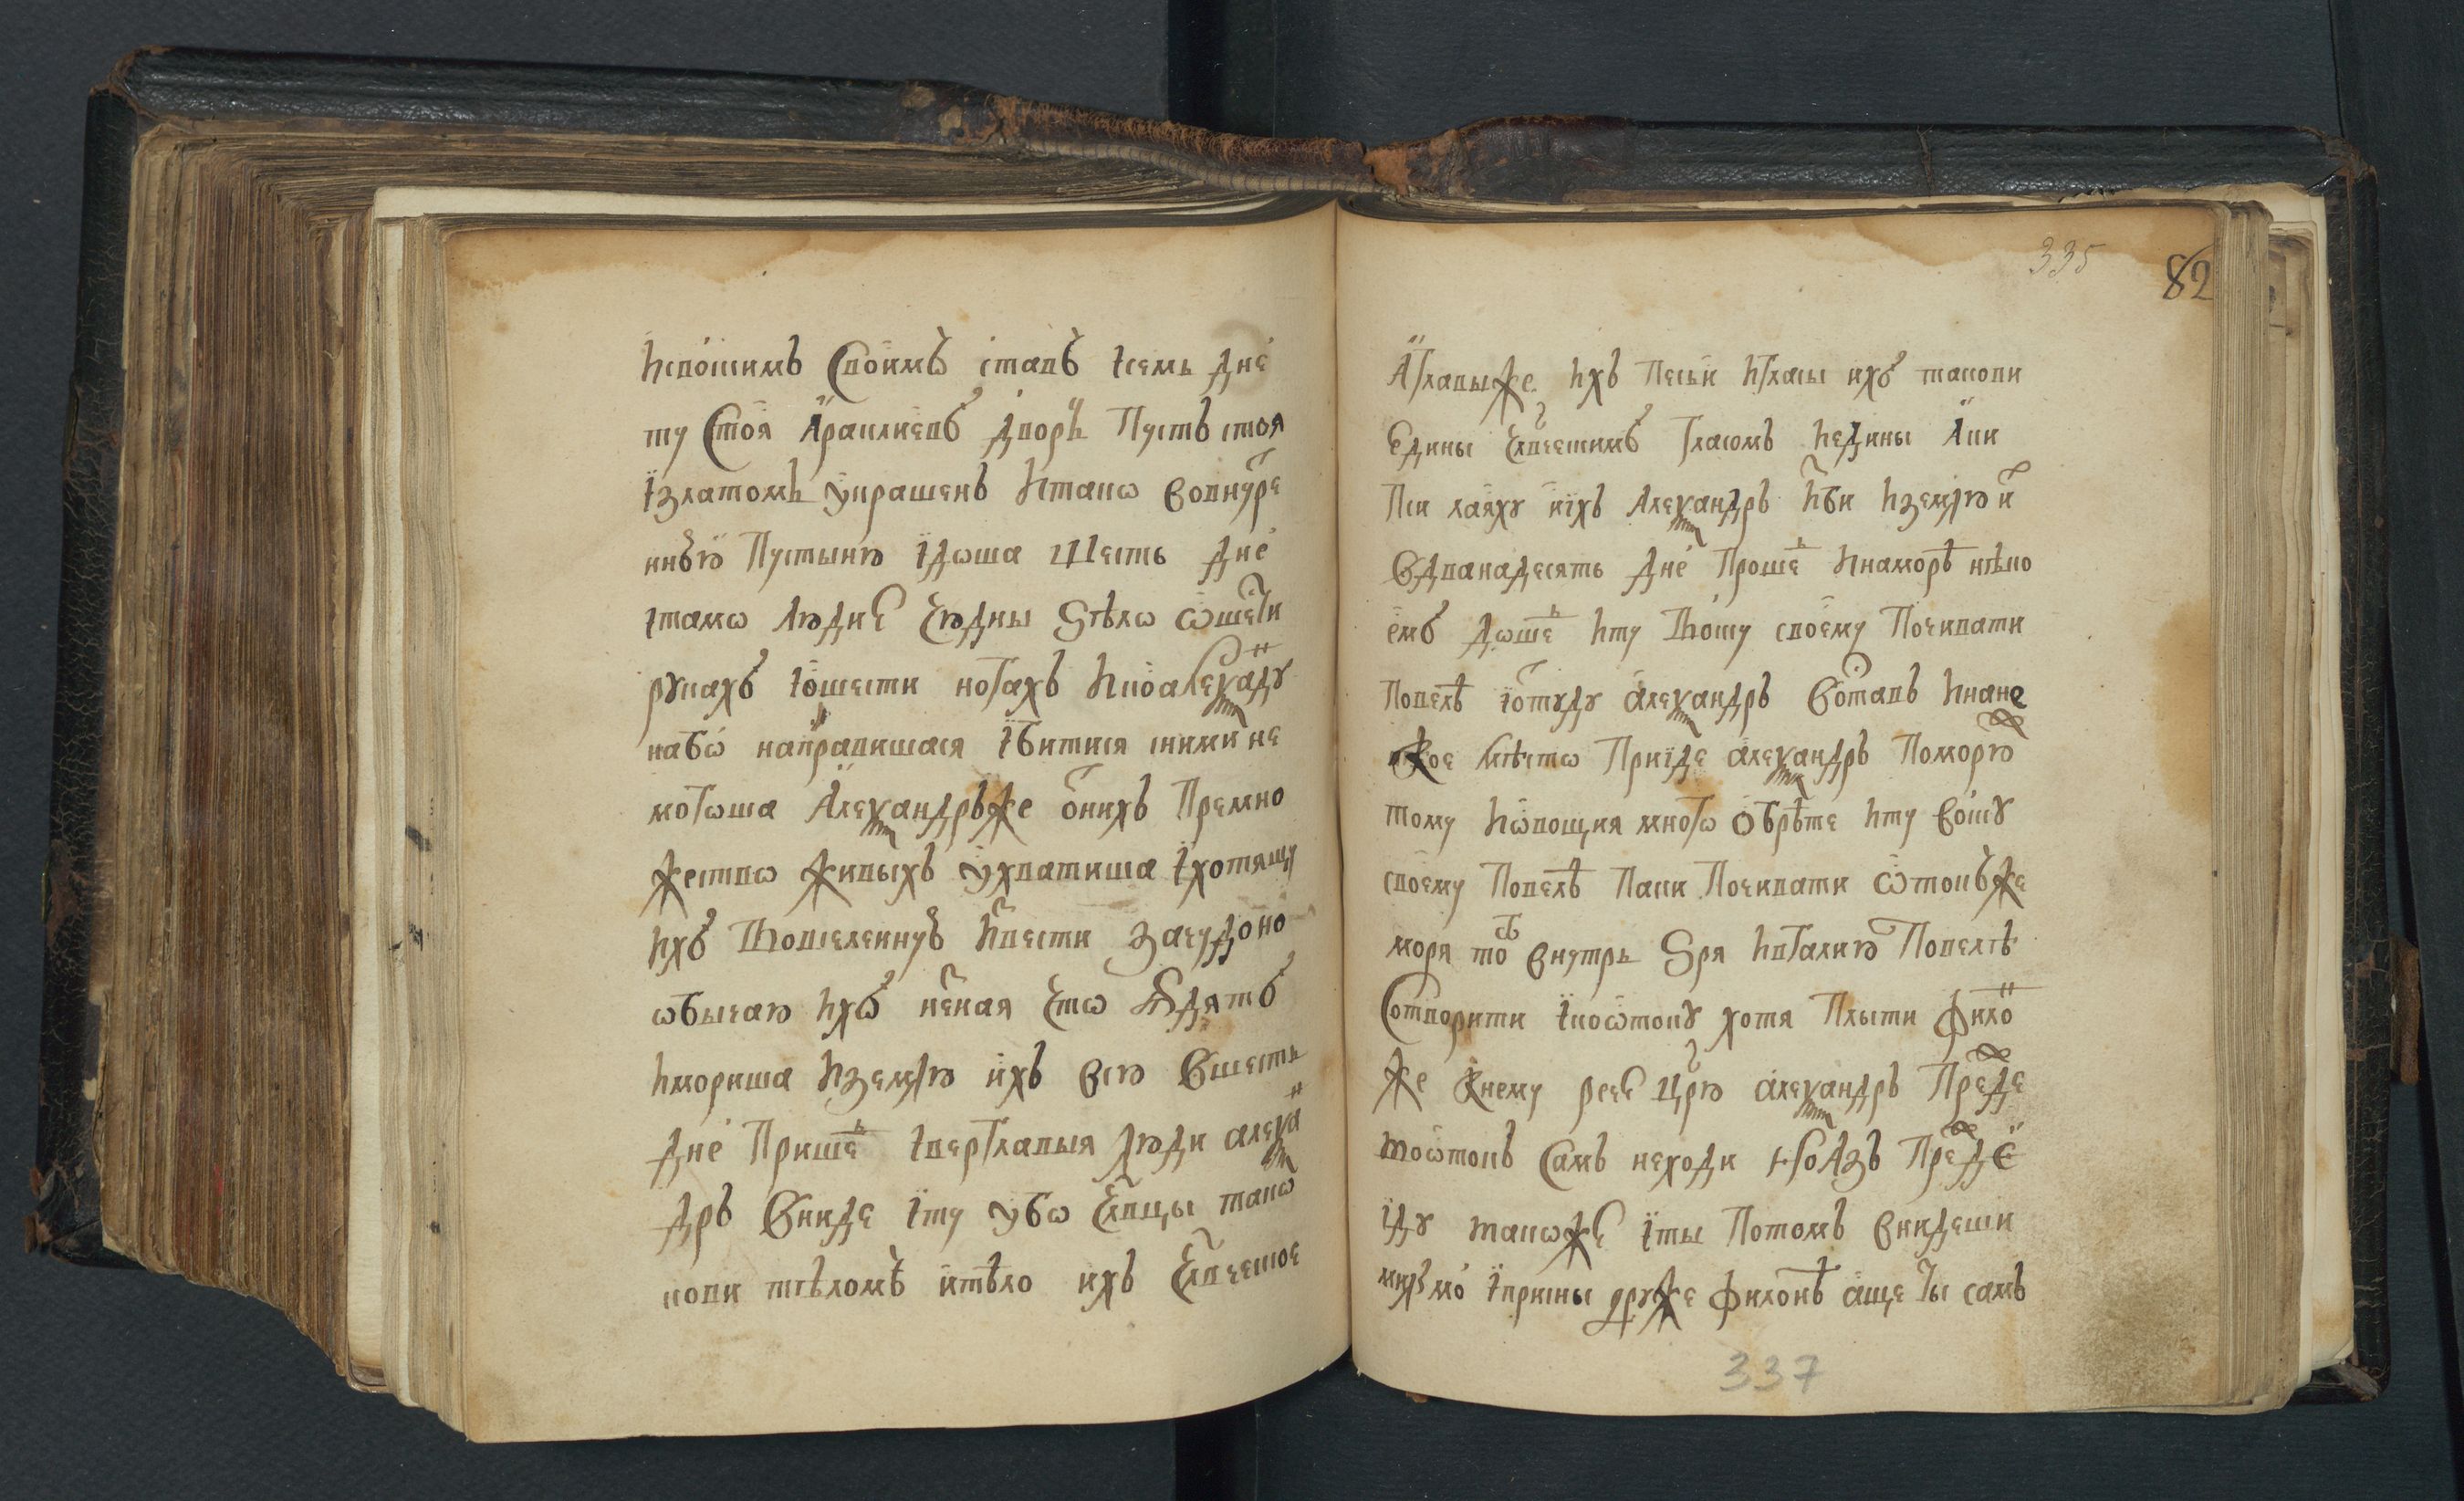 Ивоимъ своимъ ставъ їсемь дне
ту стоя Араклиевъ дворъ пустъ стоя
їзлатомъ украшенъ итако вовнуре
ннюю пустыню їдоша шесть дне
їтамо людие чюдны ѕѣло ѡшести
рукахъ їошести ногахъ икоалеѯаду
набо направишася їбитися сними не
могоша Алеѯандръже онихъ премно
жество живыхъ ухватиша їхотящу
ихъ вовселенную ивести зачудоно
обычаю ихъ некая что ѣдятъ
имориша иземлю ихъ всю вшесть
дне прише їпесглавыя люди алеѯа
дръ вниде їту убо члвцы тако
кови тѣломъ итѣло ихъ члвческое
Аглавыже ихъ песьи игласы ихъ такови
едины члвческимъ гласомъ иедины Аки
пси лаяху иїхъ Алеѯандръ изби иземлю и
вдванадесять дне проше инаморѣ нѣко
емъ доше иту войску своему почивати
повелѣ їотуду алеѯандръ воставъ инане
кое мѣсто приїде алеѯандръ поморю
тому иовощия много обрѣте иту войску
своему повелѣ паки почивати ѡтокъже
моря то внутрь ѕря игалию повелѣ
сотворити їкоѡтоку хотя плыти Фило
же кнему рече црю алеѯандръ преже
воѡтокъ самъ неходи ноАзъ преже
їду такоже їты потомъ внидеши
їприсны друже Филонѣ аще ты самъ
335
82
337